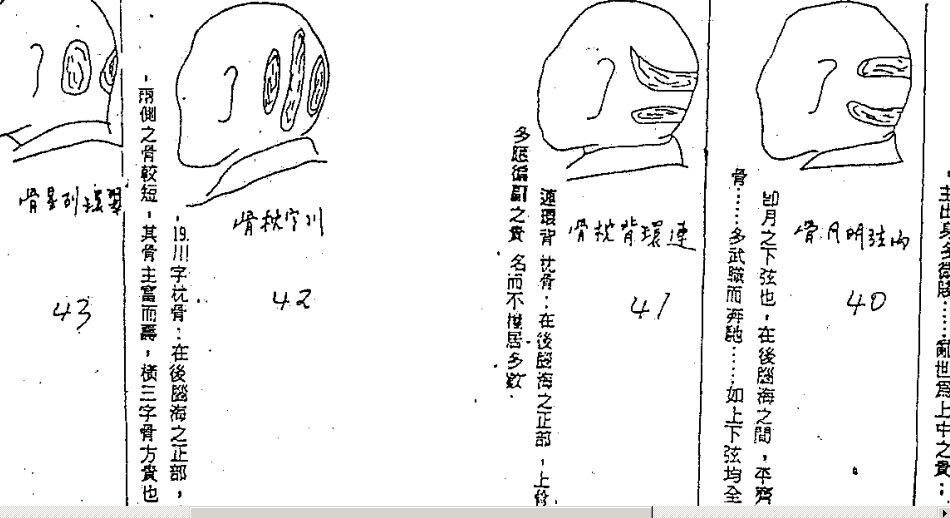 主出身多微賤……亂世爲上中之貴：
弦明月骨
40
卽月之下弦也，在後腦海之間，平齊
骨……多武職而奔馳……如上下弦均全
連環背枕骨
41
連環背枕骨：在後腦海之正部，上
多庶偏副之貴 名而不權居多數．
川字枕骨
42
19.川字枕骨：在後腦海之正部，
兩側之骨較短，其骨主富而壽，橫三字骨方貴也
環列星骨
43